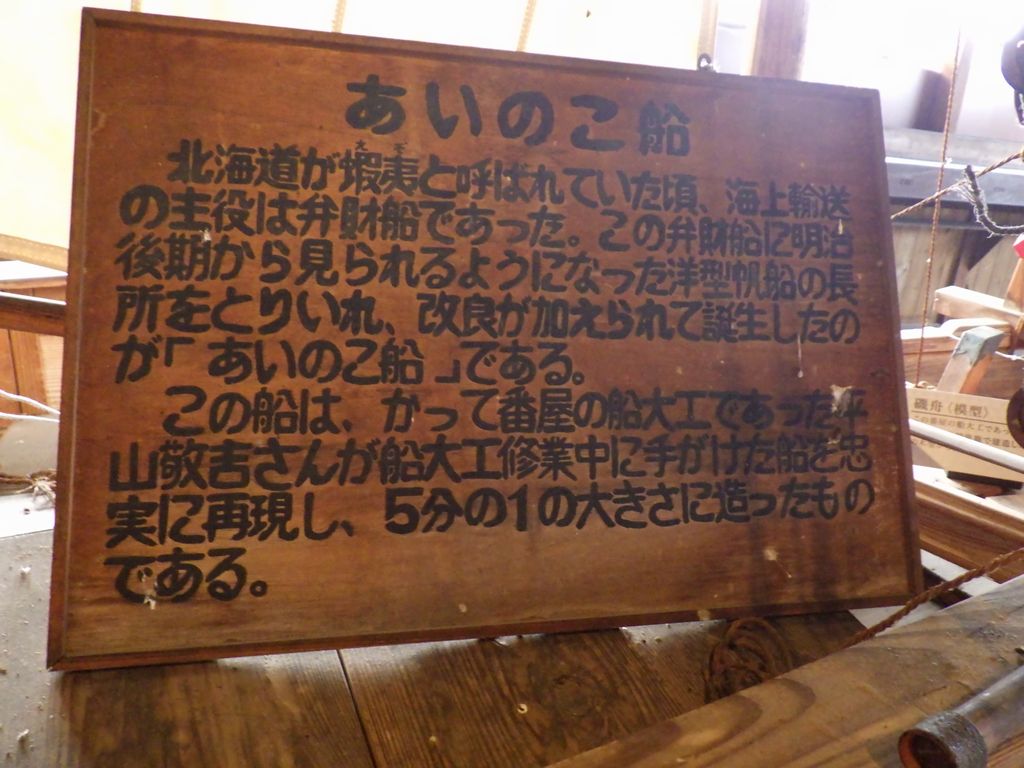 あいのこ船
北海道が蝦夷と呼ばれていた頃、海上輸送
の主役は弁財船であった。この弁財船に明治
後期から見られるようになった洋型帆船の長
所をとりいれ、改良が加えられて誕生したの
が「あいのこ船」である。
この船は、かって番屋の船大工であった平
山敬吉さんが船大工修業中に手がけた船を忠
実に再現し、5分の1の大きさに造ったもの
である。
磯舟(模型)